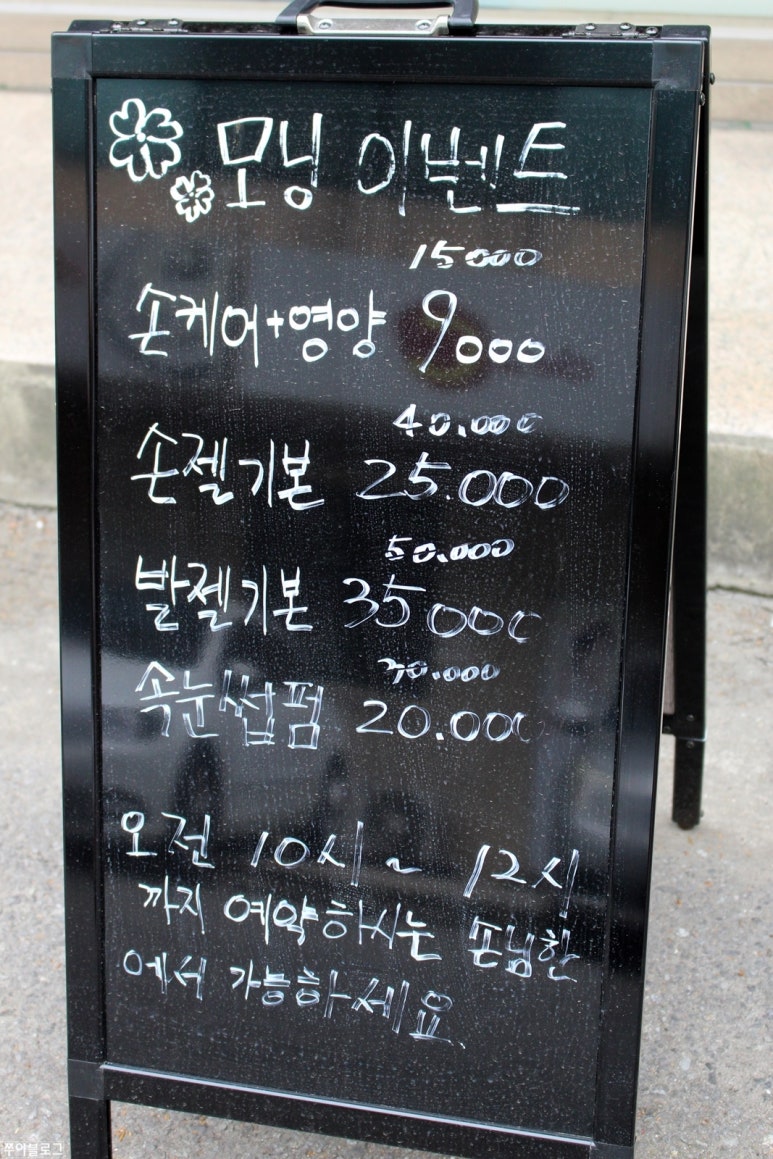 모닝 이벤트
15000
손케어+영양 9000
40.000
손젤기본 25.000
50.000
발젤기본 35000
30.000
속눈썹펌 20.000
오전 10시~12시
까지 예약하시는 손님한
에서 가능하세요
쭈야블로그